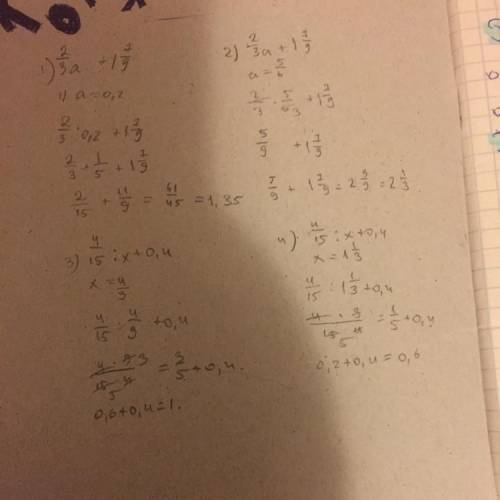 1) 2/3 a + 1 7/9
1) a = 0,2
2/3 · 0,2 + 1 7/9
2/3 + 1/5 + 1 7/9
2/15 + 11/9 = 61/45 = 1,35
2) 2/3 a + 1 7/9
a = 5/6
2/3 · 5/6 3 + 1 7/9
5/9 + 1 7/9
7/9 + 1 7/9 = 2 3/9 = 2 1/3
3) 4/15 : x + 0,4
x = 4/3
4/15 : 4/9 + 0,4
4 · 9 3 / 15 · 4 5 = 3/5 + 0,4.
0,6 + 0,4 = 1.
4) 4/15 : x + 0,4
x = 1 1/3
4/15 : 1 1/3 + 0,4
4 · 3 / 15 · 4 5 = 1/5 + 0,4
0,2 + 0,4 = 0,6